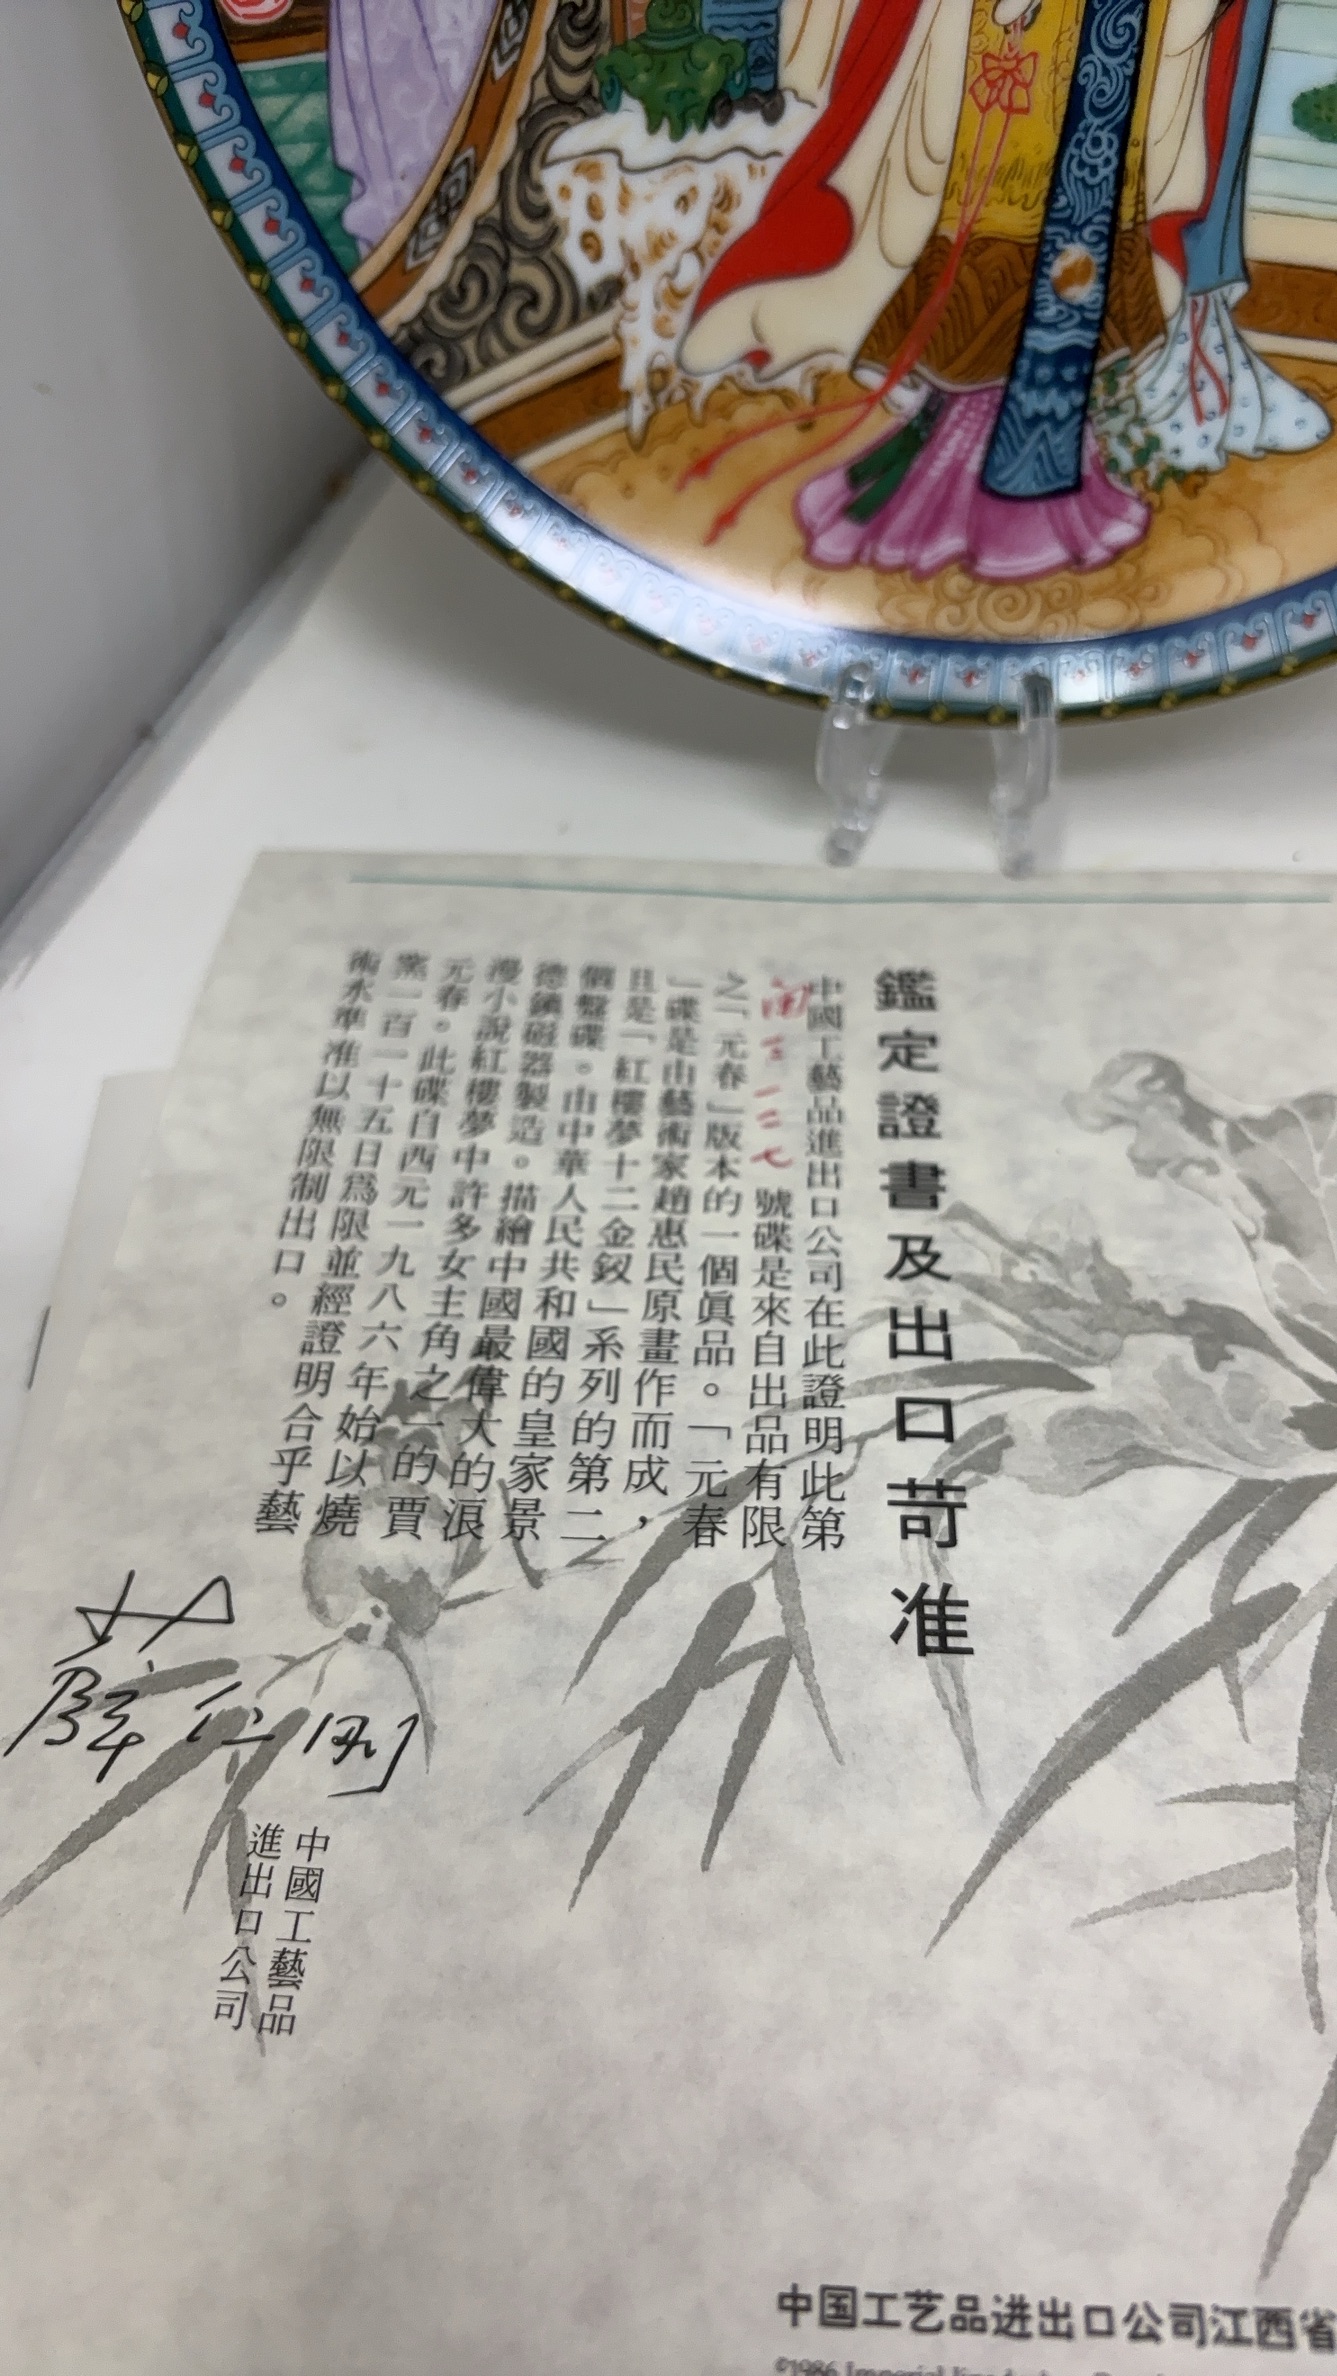 鑑定證書及出口苛准
中國工藝品進出口公司在此證明此第
號碟是來自出品有限
之「元春」版本的一個眞品。「元春
」碟是由藝術家趙惠民原畫作而成，
且是「紅樓夢十二金釵」系列的第二
個盤碟。由中華人民共和國的皇家景
德鎮磁器製造。描繪中國最偉大的浪
漫小說紅樓夢中許多女主角之一的賈
元春。此碟自西元一九八六年始以燒
窯一百一十五日爲限並經證明合乎藝
術水準准以無限制出口。
中國工藝品
進出口公司
中国工艺品进出口公司江西省
©1986 Imperial